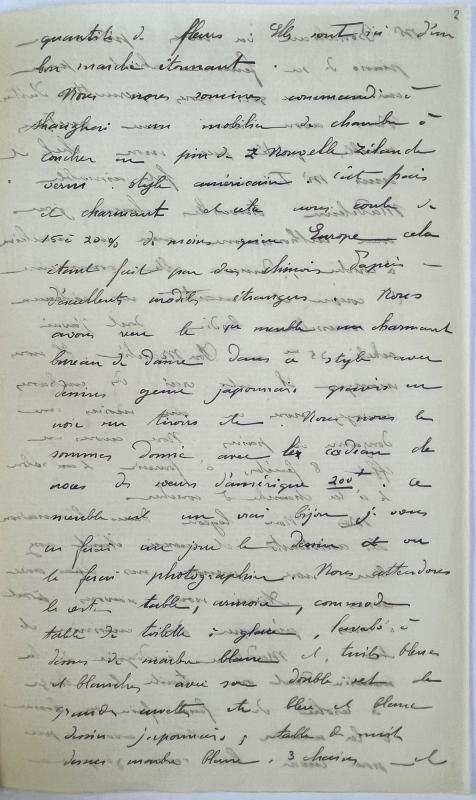 2
quantité de fleurs Elles sont ici d'un
bon marché étonnant.
Nous nous sommes commandé à
Shanghai un mobilier de chambre à
coucher en pin de Nouvelle Zélande
verni. style américain. C'est frais
et charmant et cela nous coûte de
15 à 20% de moins qu'en Europe cela
étant fait par des chinois d'après
d'excellents modèles étrangers. Nous
avons vu le meuble un charmant
bureau de dame dans ce style avec
dessins genre japonnais gravés en
noir sur tiroirs etc. Nous nous le
sommes donné avec les cadeau de
noces des soeurs d'amérique 200 ; ce
meuble est un vrai bijou je vous
en ferai un jour le dessin et ou
le ferai photographier. Nous attendons
le table, armoire, commode
table de toilette à glace, lavabo à
dessus de marbre blanc et tuiles bleues
et blanches avec son double set de
grandes cuvettes etc bleu et blanc
dessin japonnais, table de nuit
dessus marbre blanc. 3 chaises et